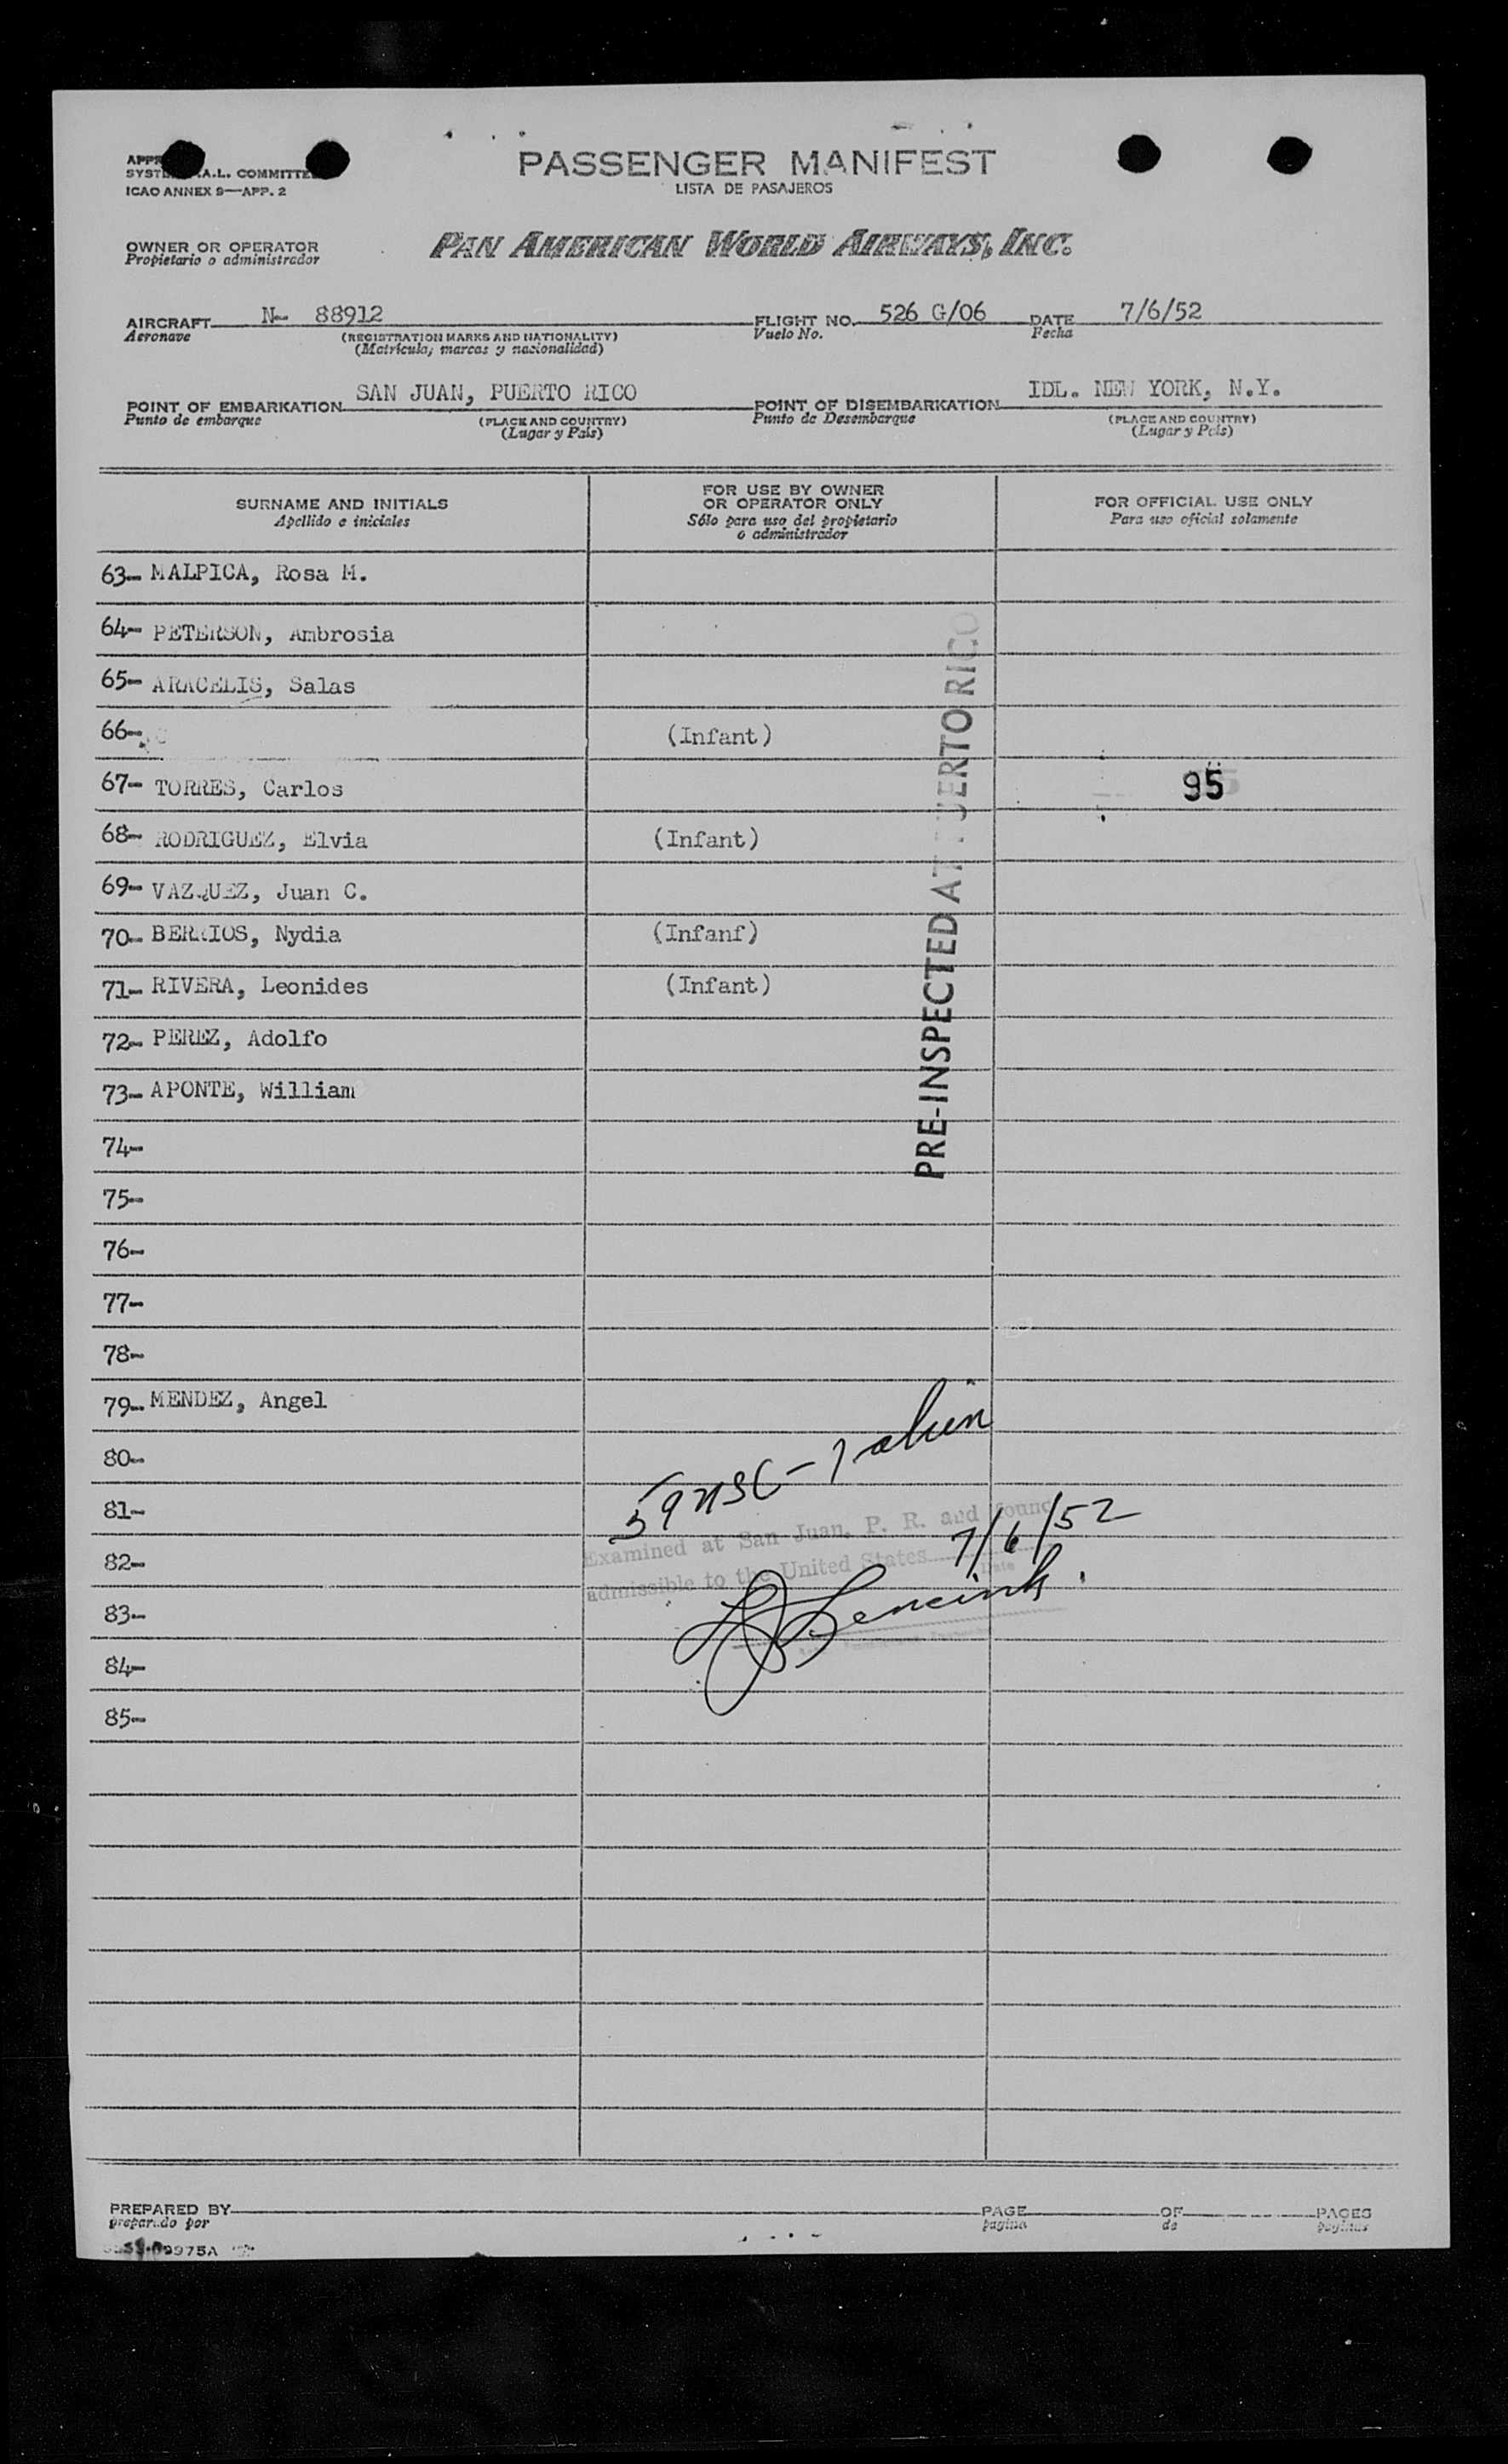 PASSENGER MANIFEST
LISTA DE PASAJEROS
A.L. COMMITTEE
ICAO ANNEX 9—APP. 2
OWNER OR OPERATOR
Propietario o administrador
PAN AMERICAN WORLD AIRWAYS, INC.
AIRCRAFT N- 88912 FLIGHT NO. 526 G/06 DATE 7/6/52
Aeronave (REGISTRATION MARKS AND NATIONALITY) Vuelo No. Fecha
(Matrícula, marcas y nacionalidad)
POINT OF EMBARKATION SAN JUAN, PUERTO RICO POINT OF DISEMBARKATION IDL. NEW YORK, N.Y.
Punto de embarque (PLACE AND COUNTRY) Punto de Desembarque (PLACE AND COUNTRY)
(Lugar y País) (Lugar y País)
SURNAME AND INITIALS
Apellido e iniciales
FOR USE BY OWNER
OR OPERATOR ONLY
Sólo para uso del propietario
o administrador
FOR OFFICIAL USE ONLY
Para uso oficial solamente
63- MALPICA, Rosa M.
64- PETERSON, Ambrosia
65- ARACELIS, Salas
66- (Infant)
67- TORRES, Carlos 95
68- RODRIGUEZ, Elvia (Infant)
69- VAZQUEZ, Juan C.
70- BERRIOS, Nydia (Infanf)
71- RIVERA, Leonides (Infant)
72- PEREZ, Adolfo
73- APONTE, William
74-
75-
76-
77-
78-
79- MENDEZ, Angel
80-
81-
82-
83-
84-
85-
PRE-INSPECTED AT PUERTO RICO
59 USC - 1 alien
Examined at San Juan, P. R. and found
admissible to the United States 7/6/52
Date
PREPARED BY PAGE OF PAGES
preparado por pagina de paginas
9975A